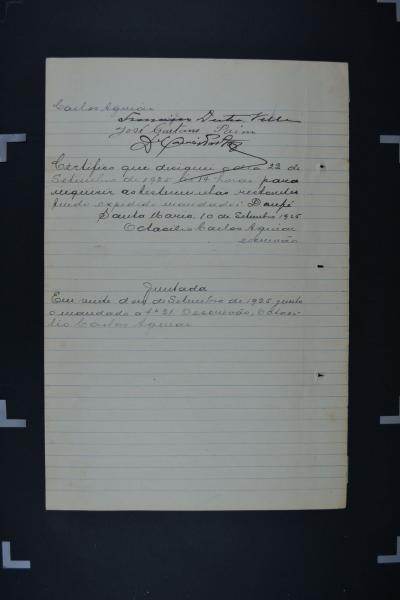 Carlos Aguiar
Francisco Dutra
José Caetano Paim
Certifico que designei o dia 22 de
Setembro de 1925 às 14 horas para
inquirir as testemunhas restantes
tendo expedido mandado. Dou fé
Santa Maria, 10 de Setembro 1925
Octacilio Carlos Aguiar
escrivão
Juntada
Em vinte dias de Setembro de 1925 junto
o mandado a fs 21. O escrivão, Octaci-
lio Carlos Aguiar